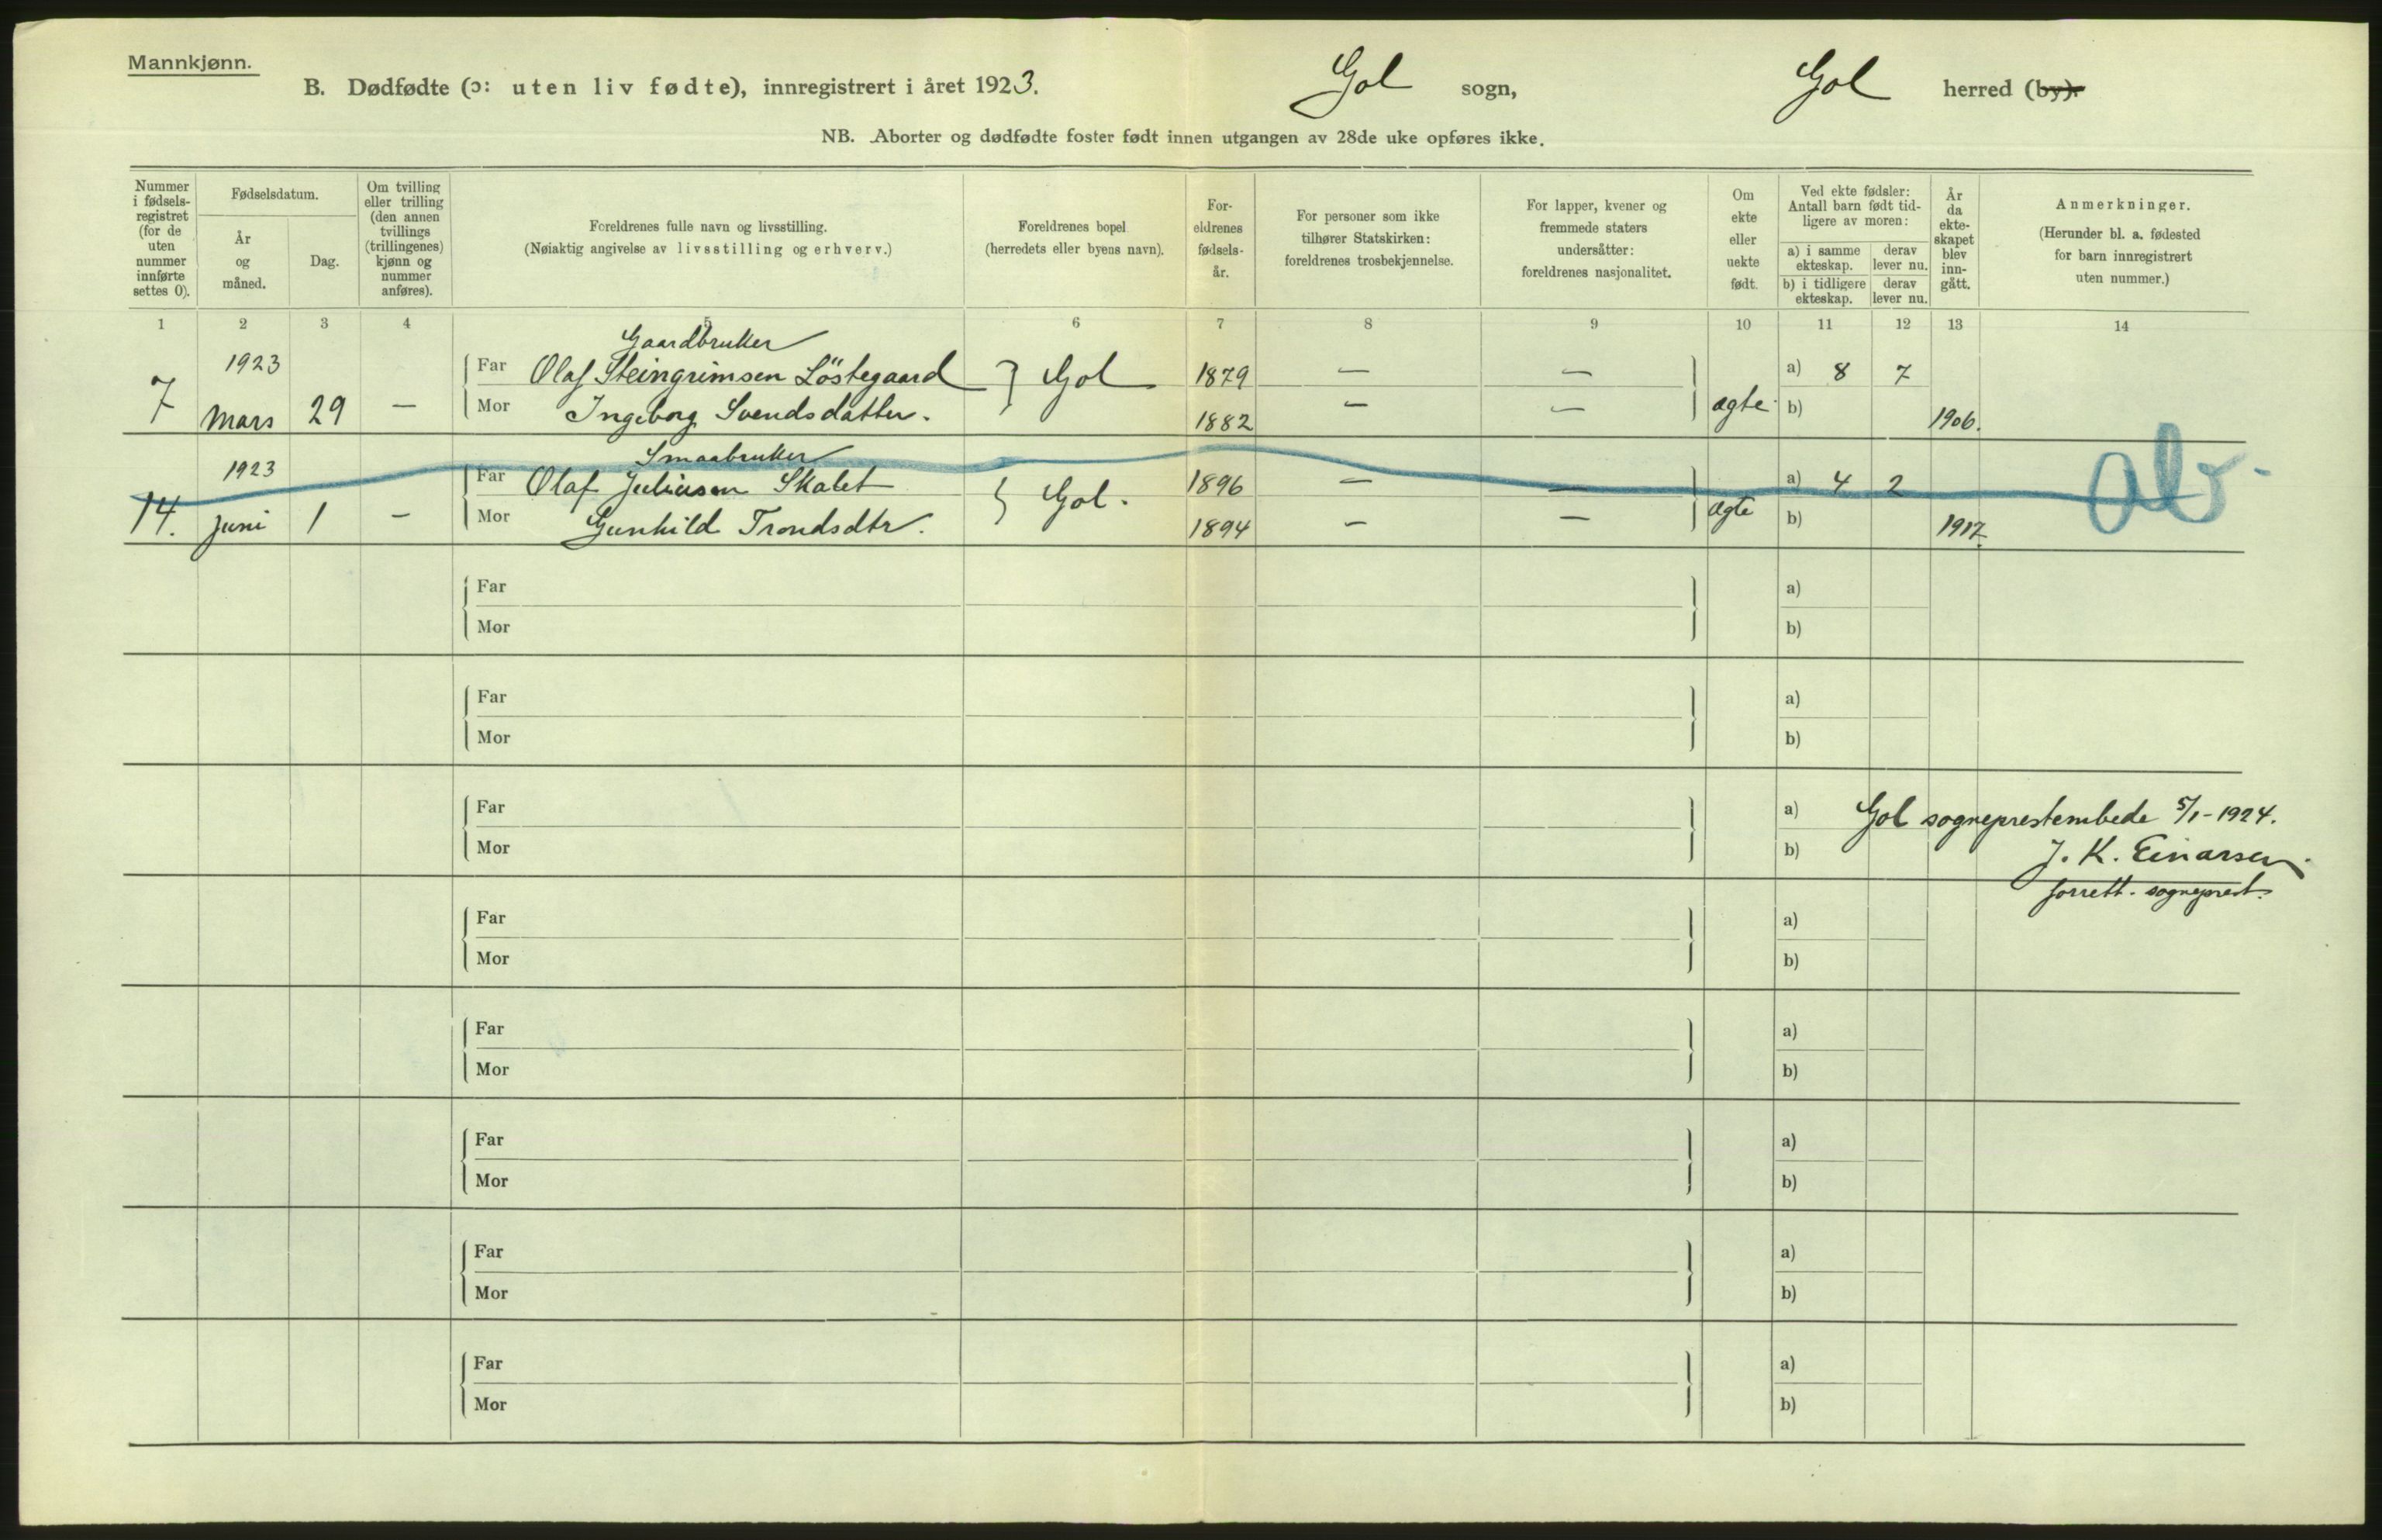 Mannkjønn.
B. Dødfødte (ɔ: uten liv fødte), innregistrert i året 1923. Gol sogn, Gol herred (by).
NB. Aborter og dødfødte foster født innen utgangen av 28de uke opføres ikke.
Nummer i fødsels-registret (for de uten nummer innførte settes 0).
Fødselsdatum.
År og måned.
Dag.
Om tvilling eller trilling (den annen tvillings (trillingenes) kjønn og nummer anføres).
Foreldrenes fulle navn og livsstilling.
(Nøiaktig angivelse av livsstilling og erhverv.)
Foreldrenes bopel
(herredets eller byens navn).
For-eldrenes fødsels-år.
For personer som ikke tilhører Statskirken: foreldrenes trosbekjennelse.
For lapper, kvener og fremmede staters undersåtter: foreldrenes nasjonalitet.
Om ekte eller uekte født.
Ved ekte fødsler: Antall barn født tid-ligere av moren:
a) i samme ekteskap. derav lever nu.
b) i tidligere ekteskap. derav lever nu.
År da ekte-skapet blev inn-gått.
Anmerkninger.
(Herunder bl. a. fødested for barn innregistrert uten nummer.)
1 2 3 4 5 6 7 8 9 10 11 12 13 14
Gaardbruker
1923 Far Olaf Steingrimsen Löstegaard } Gol 1879 — — a) 8 7
7 Mars 29 — Mor Ingeborg Svendsdatter. 1882 — — ægte b) 1906.
Smaabruker
1923 Far Olaf Juliusen Skalet } Gol. 1896 — — a) 4 2
14. Juni 1 — Mor Gunhild Trondsdtr. 1894 — — ægte b) 1917.
Far a)
Mor b)
Far a)
Mor b)
Far a) Gol sogneprestembede 5/1-1924.
Mor b) J. K. Einarsen.
forrett. sogneprest.
Far a)
Mor b)
Far a)
Mor b)
Far a)
Mor b)
Far a)
Mor b)
Far a)
Mor b)